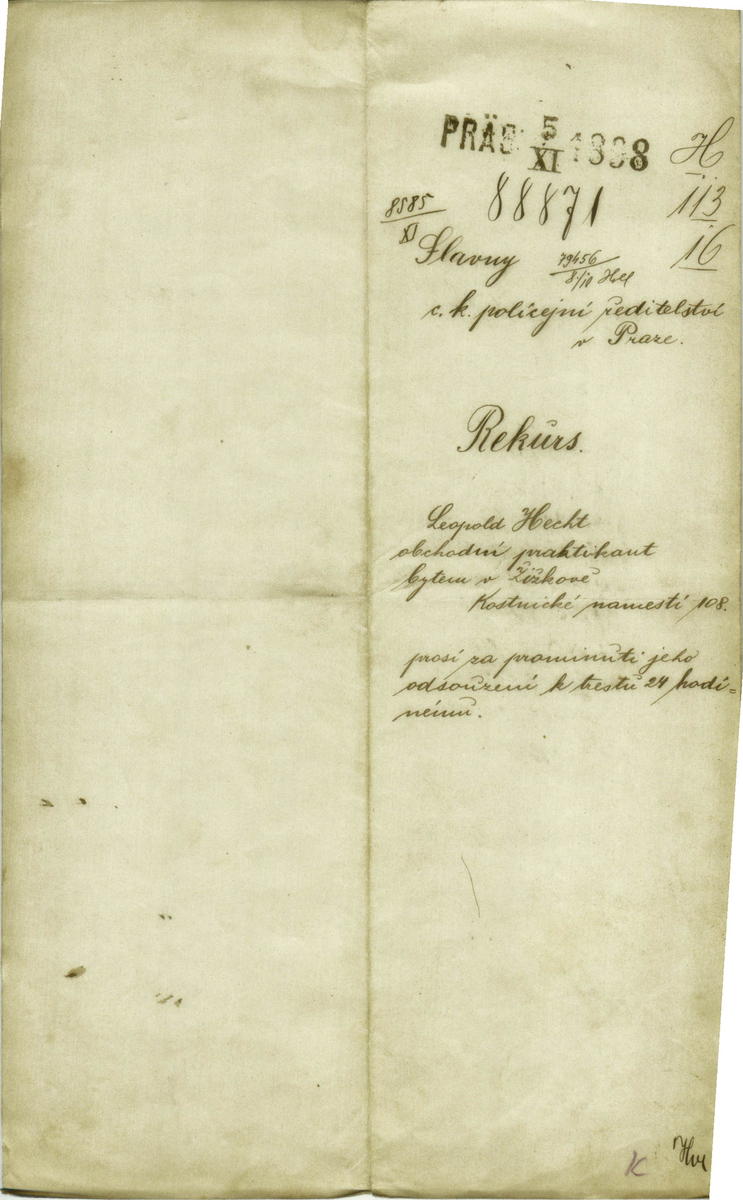 PRÄS. 5/XI 1898
H
113
16
88871
8585/XI
Slavny
79456/8/10
c. k. policejní ředitelství
v Praze.
Rekurs.
Leopold Hecht
obchodní praktikant
bytem v Žižkově
Kostnické namestí 108.
prosí za prominuti jeho
odsouzení k trestu 24 hodi=
nému.
K